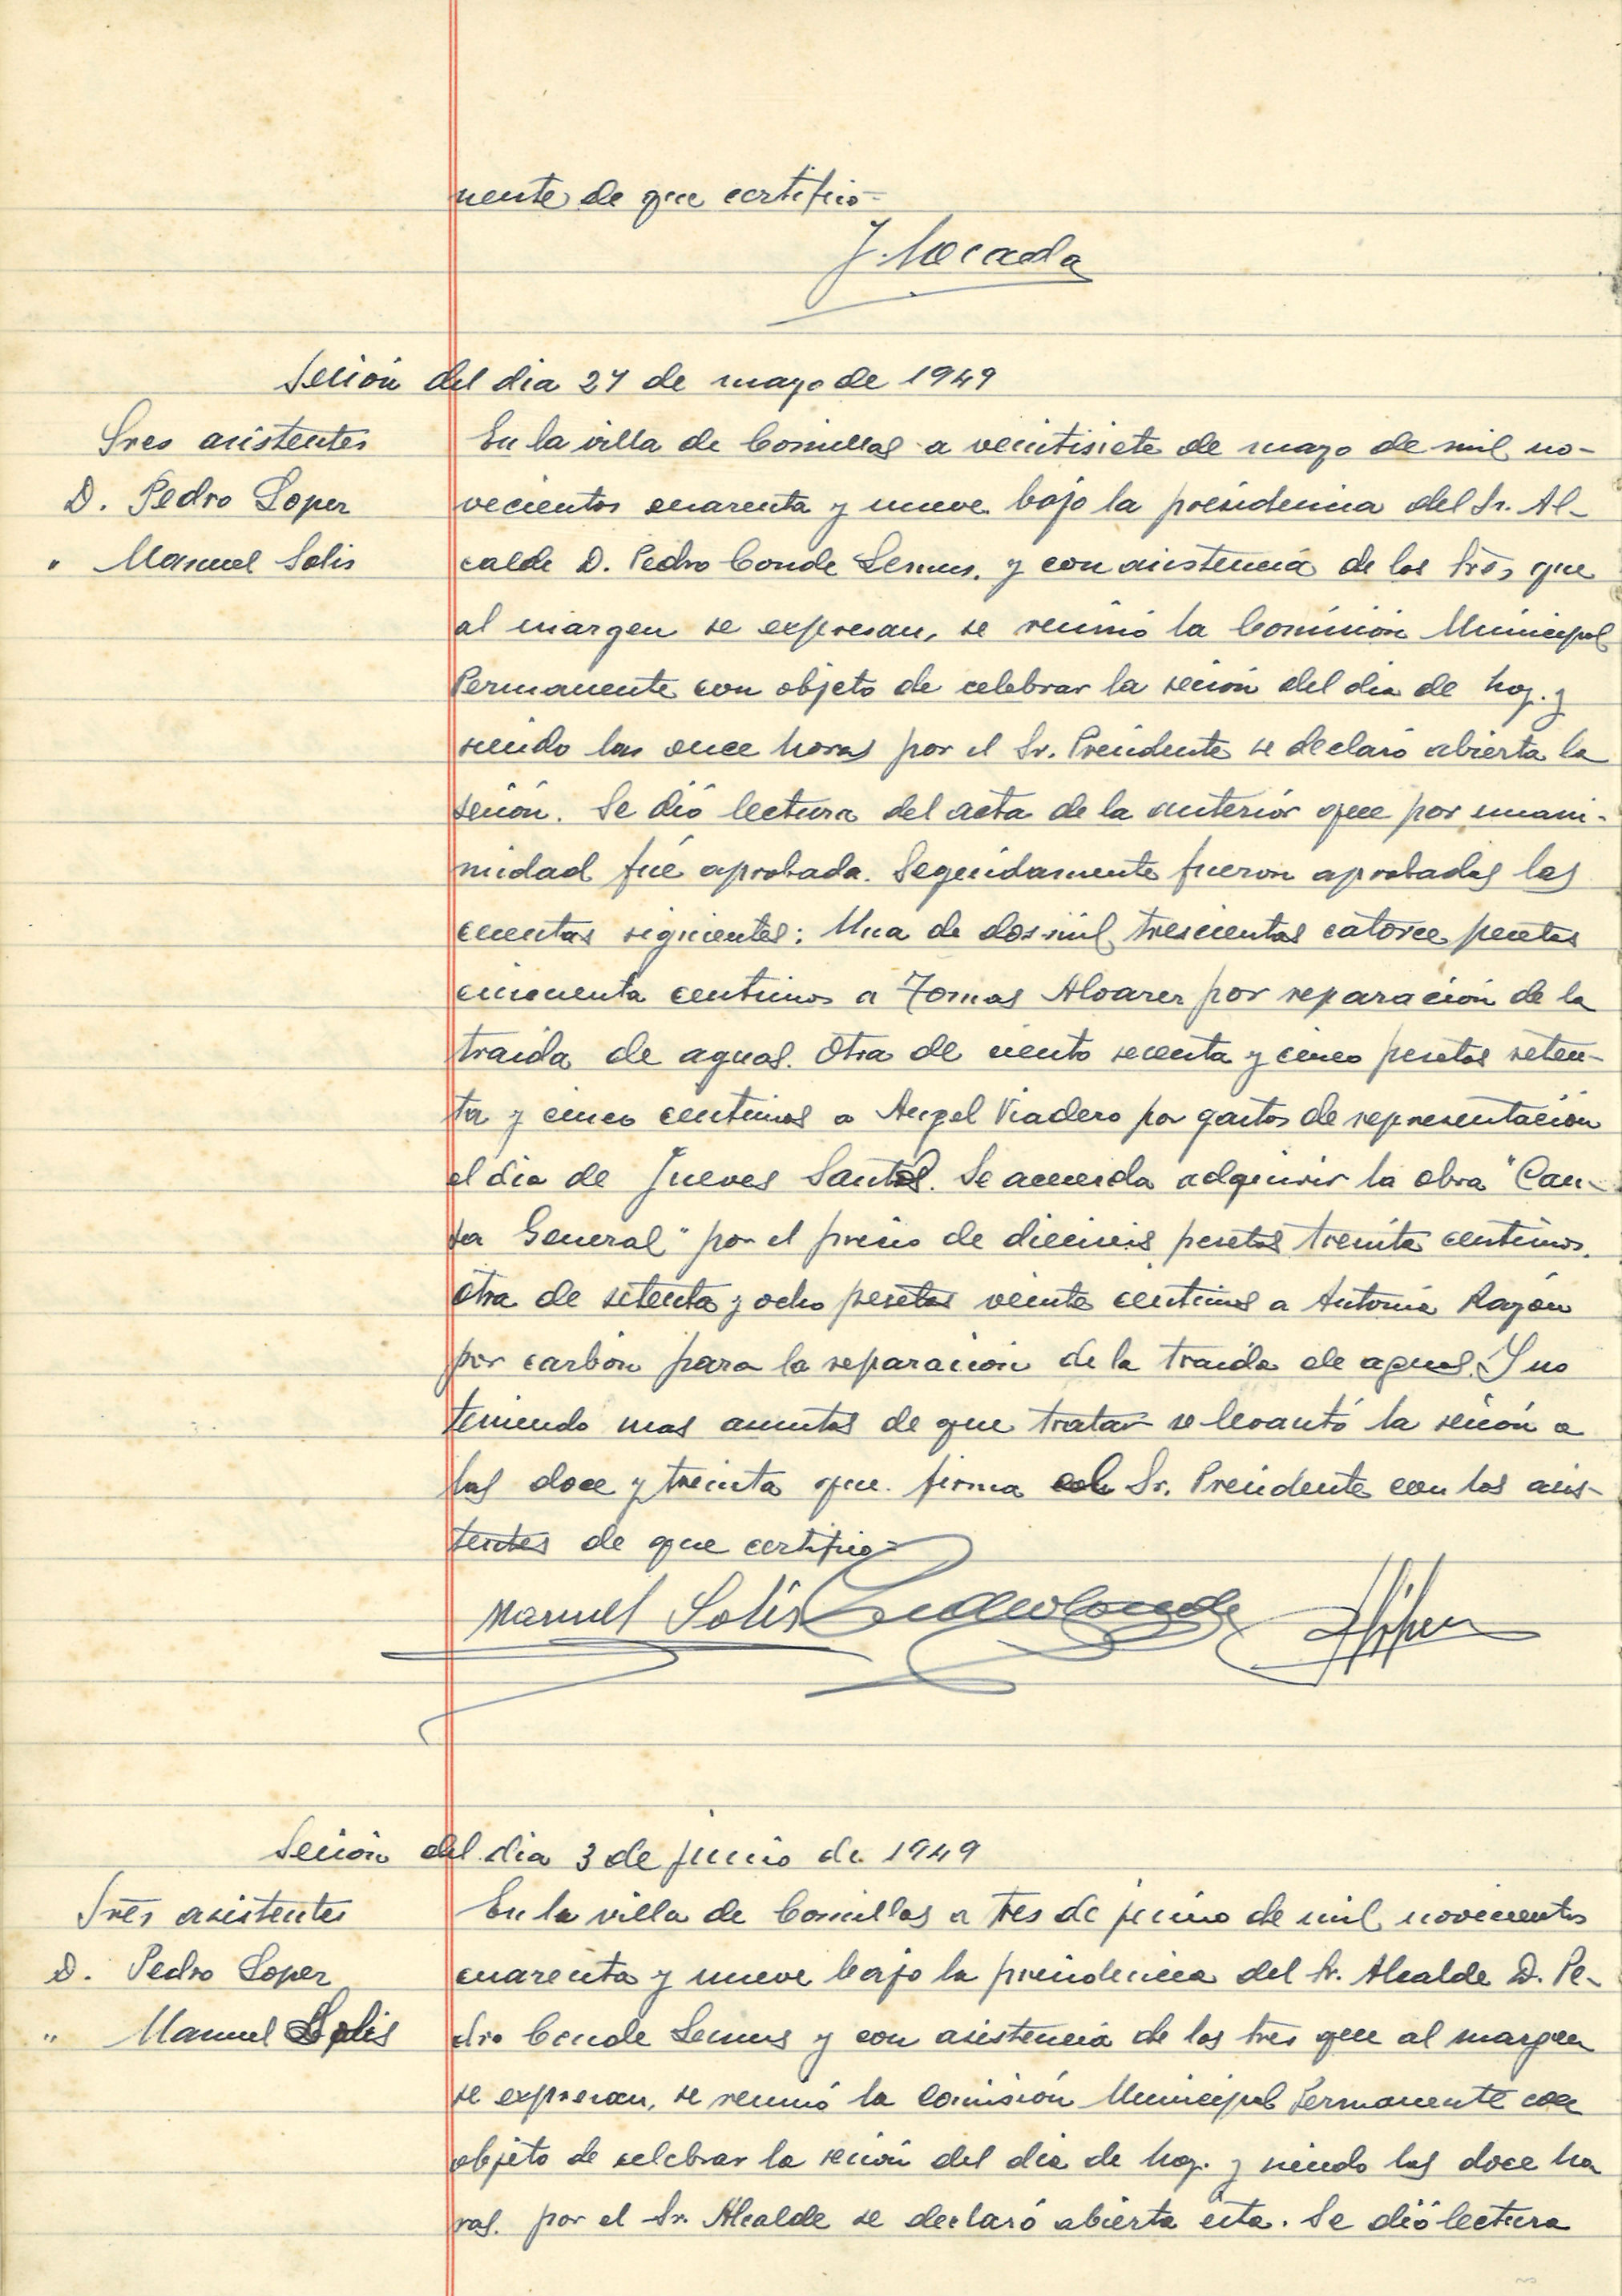 nente de que certifico=
J. Mocada
Sesión del dia 27 de mayo de 1949
Sres asistentes
D. Pedro Lopez
" Manuel Solis
En la villa de Comillas a veintisiete de mayo de mil no-
vecientos cuarenta y nueve bajo la presidencia del Sr. Al-
calde D. Pedro Conde Lemus, y con asistencia de los Sres que
al margen se expresan, se reunió la Comisión Municipal
Permanente con objeto de celebrar la sesión del dia de hoy. y
siendo las once horas por el Sr. Presidente se declaró abierta la
sesión. Se dió lectura del acta de la anterior que por unani-
midad fué aprobada. Seguidamente fueron aprobadas las
cuentas siguientes: Una de dos mil trescientas catorce pesetas
cincuenta centimos a Tomas Alvarez por reparación de la
traida de aguas. Otra de ciento sesenta y cinco pesetas seten-
ta y cinco centimos a Angel Viadero por gastos de representación
el dia de Jueves Santo. Se acuerda adquirir la obra "Cau-
sa General" por el precio de dieciseis pesetas treinta centimos.
Otra de setenta y ocho pesetas veinte centimos a Antonia
por carbón para la reparación de la traida de aguas. Y no
teniendo mas asuntos de que tratar se levantó la sesión a
las doce y treinta que firma el Sr. Presidente con los asis-
tentes de que certifico=
Manuel Solis Pedro Conde
Sesión del dia 3 de junio de 1949
Sres asistentes
D. Pedro Lopez
" Manuel Solis
En la villa de Comillas a tres de junio de mil novecientos
cuarenta y nueve bajo la presidencia del Sr. Alcalde D. Pe-
dro Conde Lemus y con asistencia de los Sres que al margen
se expresan, se reunió la Comisión Municipal Permanente con
objeto de celebrar la sesión del dia de hoy. y siendo las doce ho
ras. por el Sr. Alcalde se declaró abierta esta. Se dió lectura